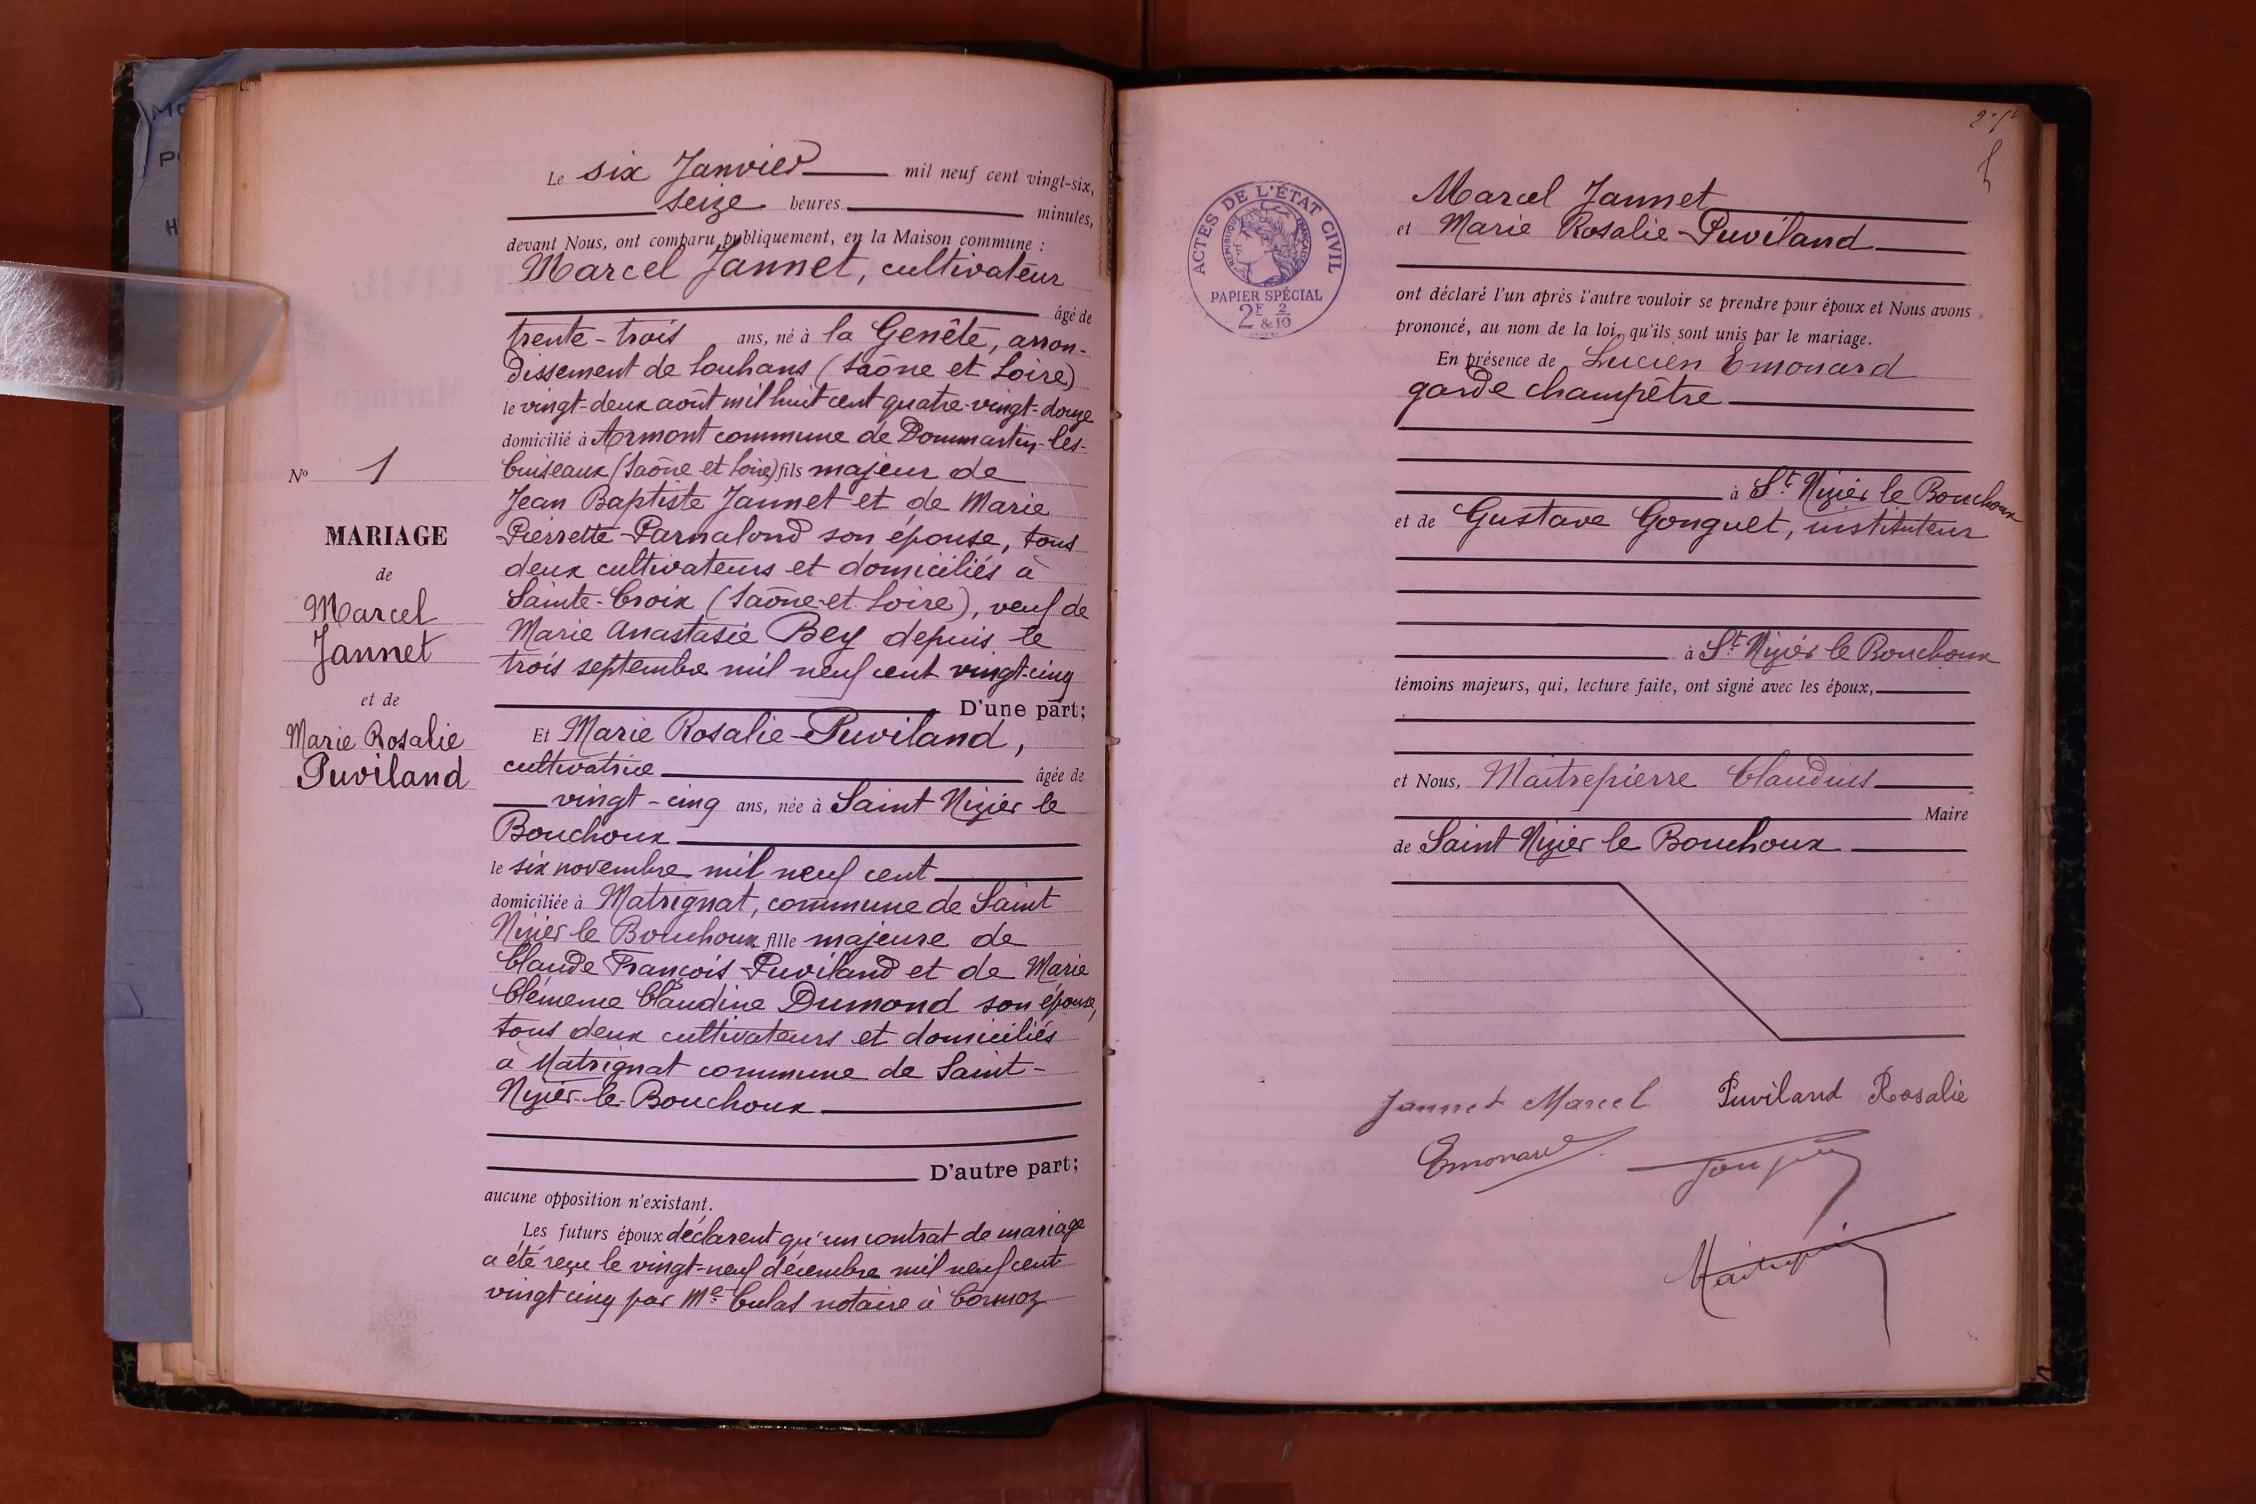 Le six Janvier mil neuf cent vingt-six,
seize heures minutes,
devant Nous, ont comparu publiquement, en la Maison commune :
Marcel Jannet, cultivateur
âgé de
trente-trois ans, né à la Genête, arron-
dissement de Louhans (Saône et Loire)
le vingt-deux août mil huit cent quatre-vingt-douze
domicilié à Armont commune de Dommartin-les-
Cuiseaux (Saône et Loire) fils majeur de
Jean Baptiste Jannet et de Marie
Pierrette Parnalond son épouse, tous
deux cultivateurs et domiciliés à
Sainte-Croix (Saône-et-Loire), veuf de
Marie Anastasie Bey depuis le
trois septembre mil neuf cent vingt-cinq
D'une part;
Et Marie Rosalie Puviland,
cultivatrice âgée de
vingt-cinq ans, née à Saint Nizier le
Bouchoux
le six novembre mil neuf cent
domiciliée à Matrignat, commune de Saint
Nizier le Bouchoux fille majeure de
Claude François Puviland et de Marie
Clémence Claudine Dumond son épouse,
tous deux cultivateurs et domiciliés
à Matrignat commune de Saint-
Nizier-le-Bouchoux
D'autre part;
aucune opposition n'existant.
Les futurs époux déclarent qu'un contrat de mariage
a été reçu le vingt-neuf décembre mil neuf cent
vingt cinq par Me Culas notaire à Cormoz
No 1
MARIAGE
de
Marcel
Jannet
et de
Marie Rosalie
Puviland
ACTES DE L'ÉTAT CIVIL
RÉPUBLIQUE FRANÇAISE
PAPIER SPÉCIAL
2F & 2/10
Marcel Jannet
et Marie Rosalie Puviland
ont déclaré l'un après l'autre vouloir se prendre pour époux et Nous avons
prononcé, au nom de la loi, qu'ils sont unis par le mariage.
En présence de Lucien Emonard
garde champêtre
à St Nizier le Bouchoux
et de Gustave Gonguet, instituteur
à St Nizier le Bouchoux
témoins majeurs, qui, lecture faite, ont signé avec les époux,
et Nous, Maitrepierre Claudius
Maire
de Saint Nizier le Bouchoux
Jannet Marcel Puviland Rosalie
Emonard
Maitrepierre